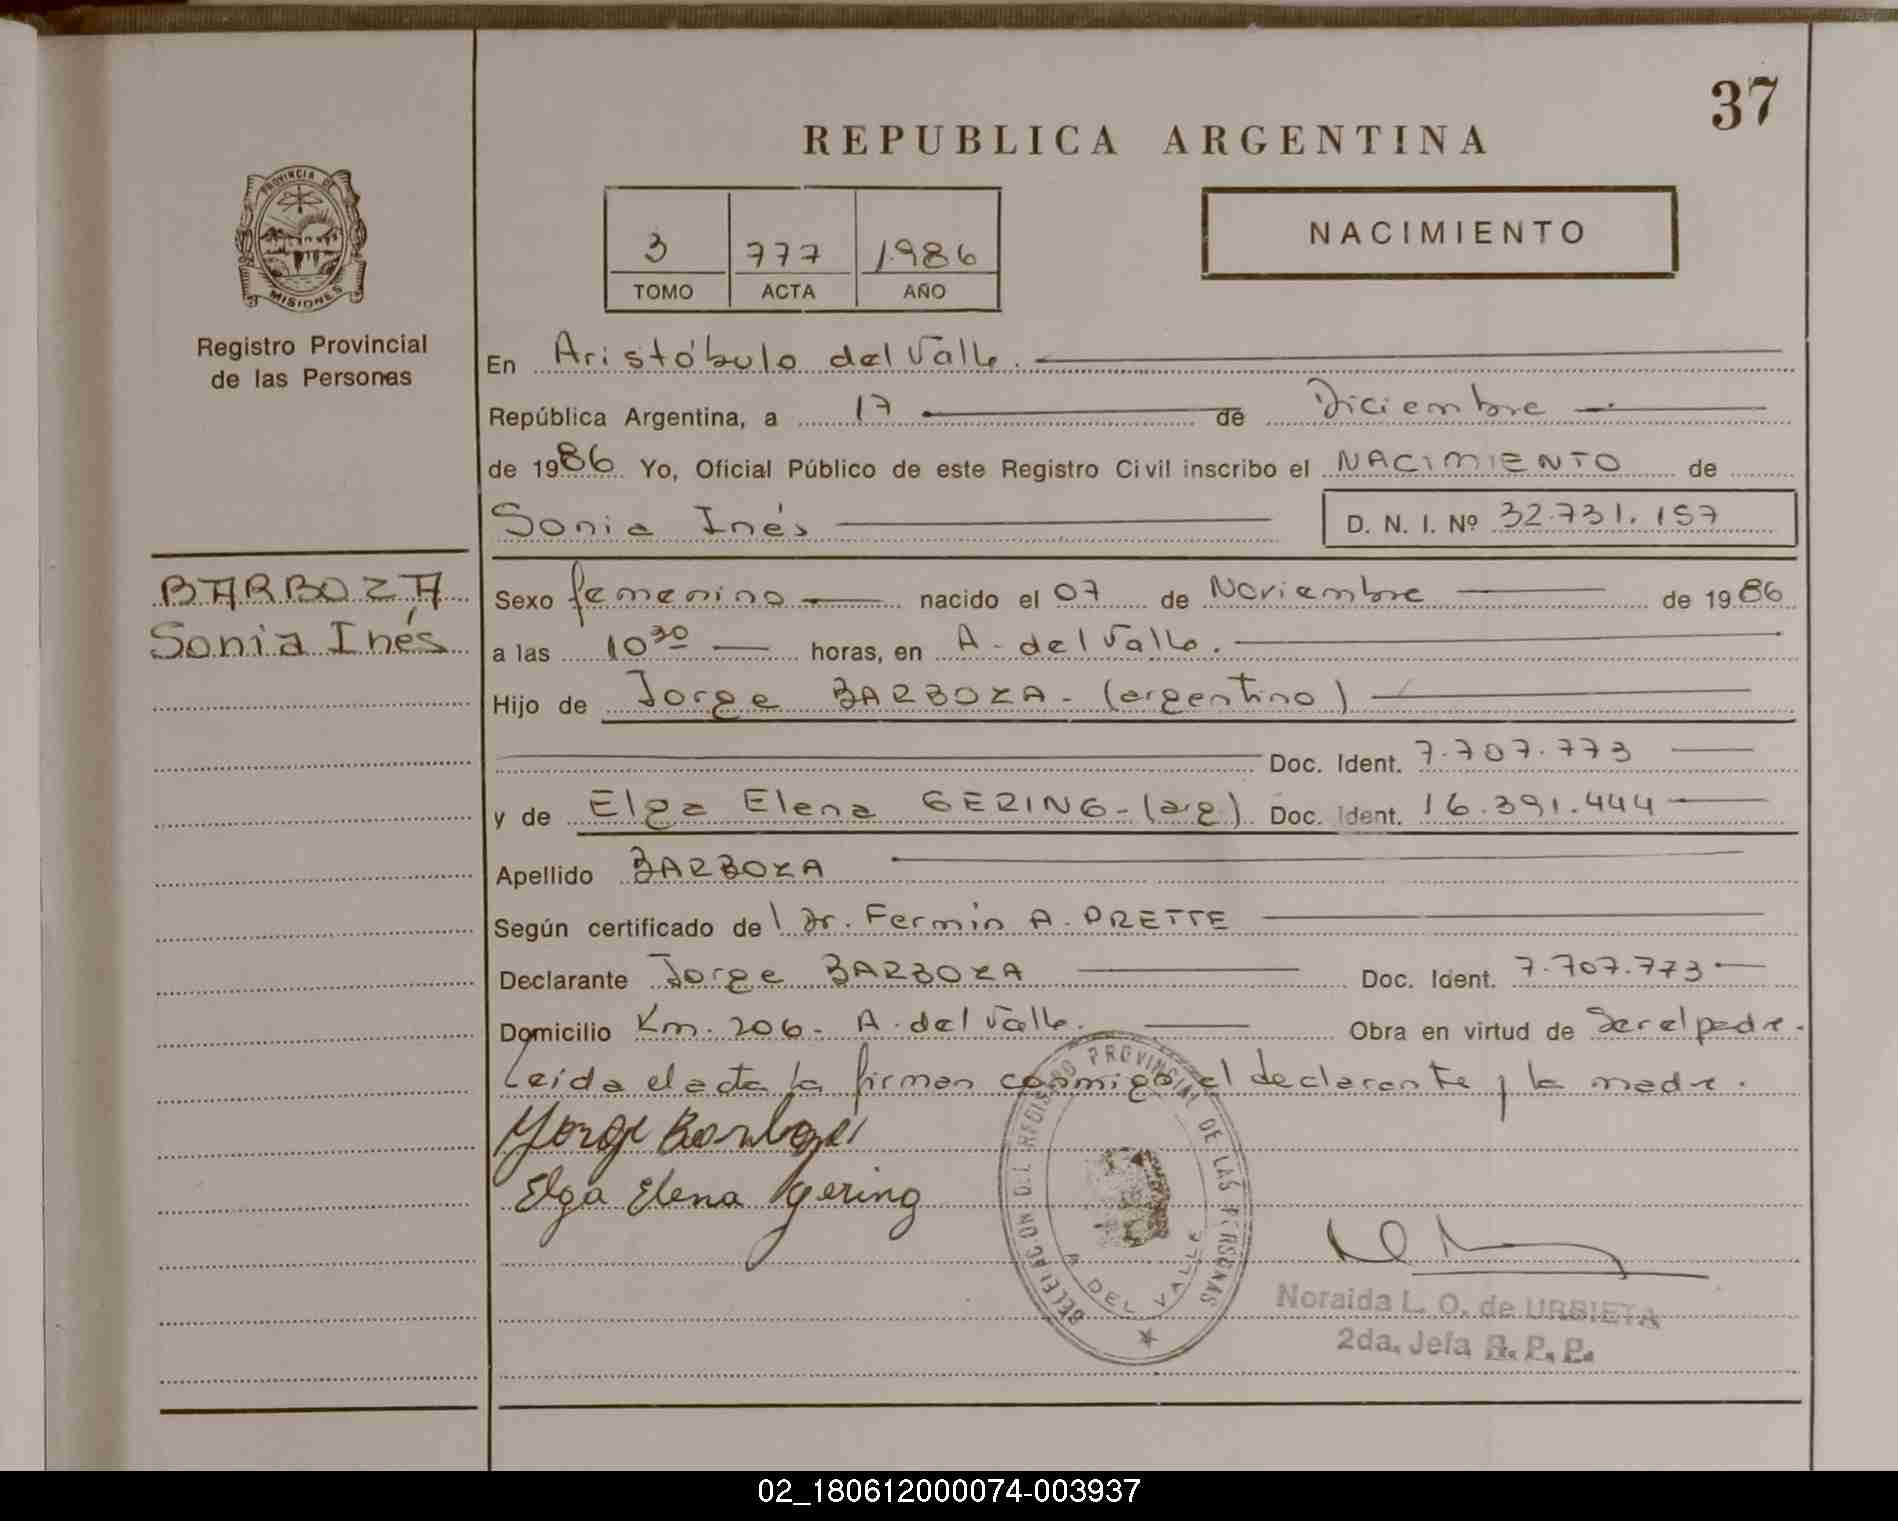 37
REPUBLICA ARGENTINA
PROVINCIA DE
MISIONES
Registro Provincial
de las Personas
3 777 1.986
TOMO ACTA AÑO
NACIMIENTO
En Aristóbulo del Valle.
República Argentina, a 17 de Diciembre
de 1986 Yo, Oficial Público de este Registro Civil inscribo el NACIMIENTO de
Sonia Inés D. N. I. Nº 32.731.157
BARBOZA
Sonia Inés
Sexo femenino nacido el 07 de Noviembre de 1986
a las 10 30 horas, en A. del Valle.
Hijo de Jorge BARBOZA - (argentino)
Doc. Ident. 7.707.773
y de Elga Elena GERING - (arg) Doc. Ident. 16.391.444
Apellido BARBOZA
Según certificado del Dr. Fermín A. PRETTE
Declarante Jorge BARBOZA Doc. Ident. 7.707.773
Domicilio Km. 206 - A. del Valle. Obra en virtud de Ser el padre.
Leida el acta la firman conmigo el declarante y la madre.
Jorge Barboza
Elga Elena Gering
DELEGACION DEL REGISTRO PROVINCIAL DE LAS PERSONAS
A DEL VALLE
Noraida L. O. de URBIETA
2da. Jefa R. P. P.
02_180612000074-003937